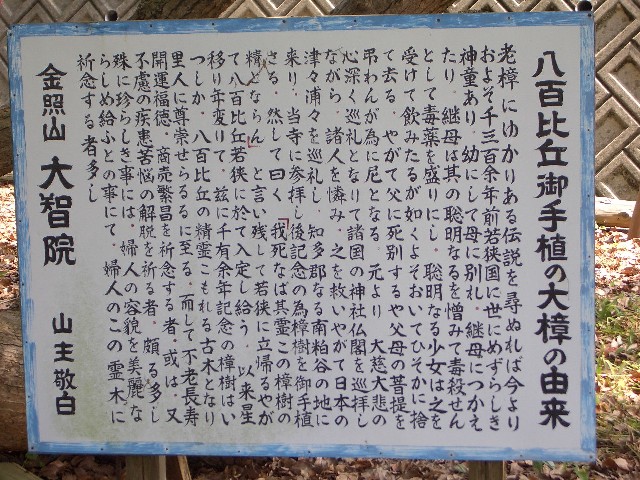 八百比丘御手植の大樟の由来
老樟にゆかりある伝説を尋ぬれば今より
およそ千三百余年前若狭国に世にめずらしき
神童あり．幼にして母に別れ．継母につかえ
たり．継母は其の聡明なるを憎みて毒殺せん
として毒薬を盛りにし．聡明なる少女は之を
受けて飲みたるが如くよそおいてひそかに捨
て去る．やがて父に死別するや父母の菩提を
弔わんが為に尼となる．元より．大慈大悲の
心深く巡礼となりて諸国の神社仏閣を巡拝し
ながら．諸人を憐み．之を救いやがて日本の
津々浦々を巡礼し．知多郡なる南粕谷の地に
来り．当寺に参拝し後記念の為樟樹を御手植
さる．然して曰く「我死なば其霊この樟樹の
精とならん」と言い残して若狭に立帰るやが
て八百比丘若狭に於て入定し給う．以来星
移り年変りて．玆に千有余年記念の樟樹はい
つしか．八百比丘の精霊こもれる古木となり
里人に尊崇せらるるに至る．而して不老長寿
開運福徳．商売繁昌を祈念する者．或は．又
不慮の疾患苦悩の解脱を祈る者．頗る多し
殊に珍らしき事には．婦人の容貌を美麗な
らしめ給ふとの事にて．婦人のこの霊木に
祈念する者多し
金照山 大智院 山主敬白